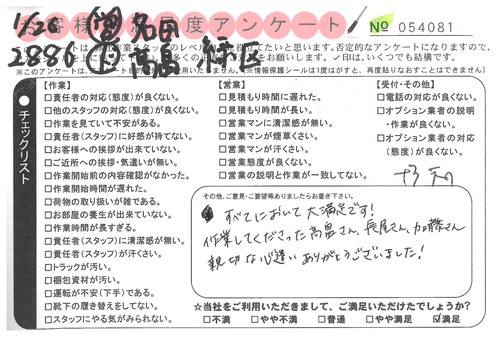 お客様満足度アンケート
№ 054081
1/26 名
2886 高畠 緑区
※このアンケートは
※情報保護シールは1度はがすと、再度貼りなおすことはできません)
チェックリスト
【作業】
□責任者の対応(態度)が良くない。
□他のスタッフの対応(態度)が良くない。
□作業を見ていて不安がある。
□責任者(スタッフ)に好感が持てない。
□お客様への挨拶が出来ていない。
□ご近所への挨拶・気遣いが無い。
□作業開始前の内容確認がなかった。
□作業開始時間が遅れた。
□荷物の取り扱いが雑である。
□お部屋の養生が出来ていない。
□作業時間が長すぎる。
□責任者(スタッフ)に清潔感が無い。
□責任者(スタッフ)が汗くさい。
□トラックが汚い。
□梱包資材が汚い。
□運転が不安(下手)である。
□靴下の履き替えをしてない。
□スタッフにやる気がみられない。
【営業】
□見積もり時間に遅れた。
□見積もり時間が長い。
□営業マンに清潔感が無い。
□営業マンが煙草くさい。
□営業マンが汗くさい。
□営業態度が良くない。
□営業の説明と作業が一致してない。
【受付・その他】
□電話の対応が良くない。
□オプション業者の説明
・作業が良くない。
□オプション業者の対応
(態度)が良くない。
その他、ご意見・ご要望等ありましたらお書き下さい。
すべてにおいて大満足です!
作業してくださった高畠さん、長尾さん、加藤さん
親切な心遣いありがとうございました!
☆当社をご利用いただきまして、ご満足いただけたでしょうか?
□不満 □やや不満 □普通 □やや満足 ☑満足